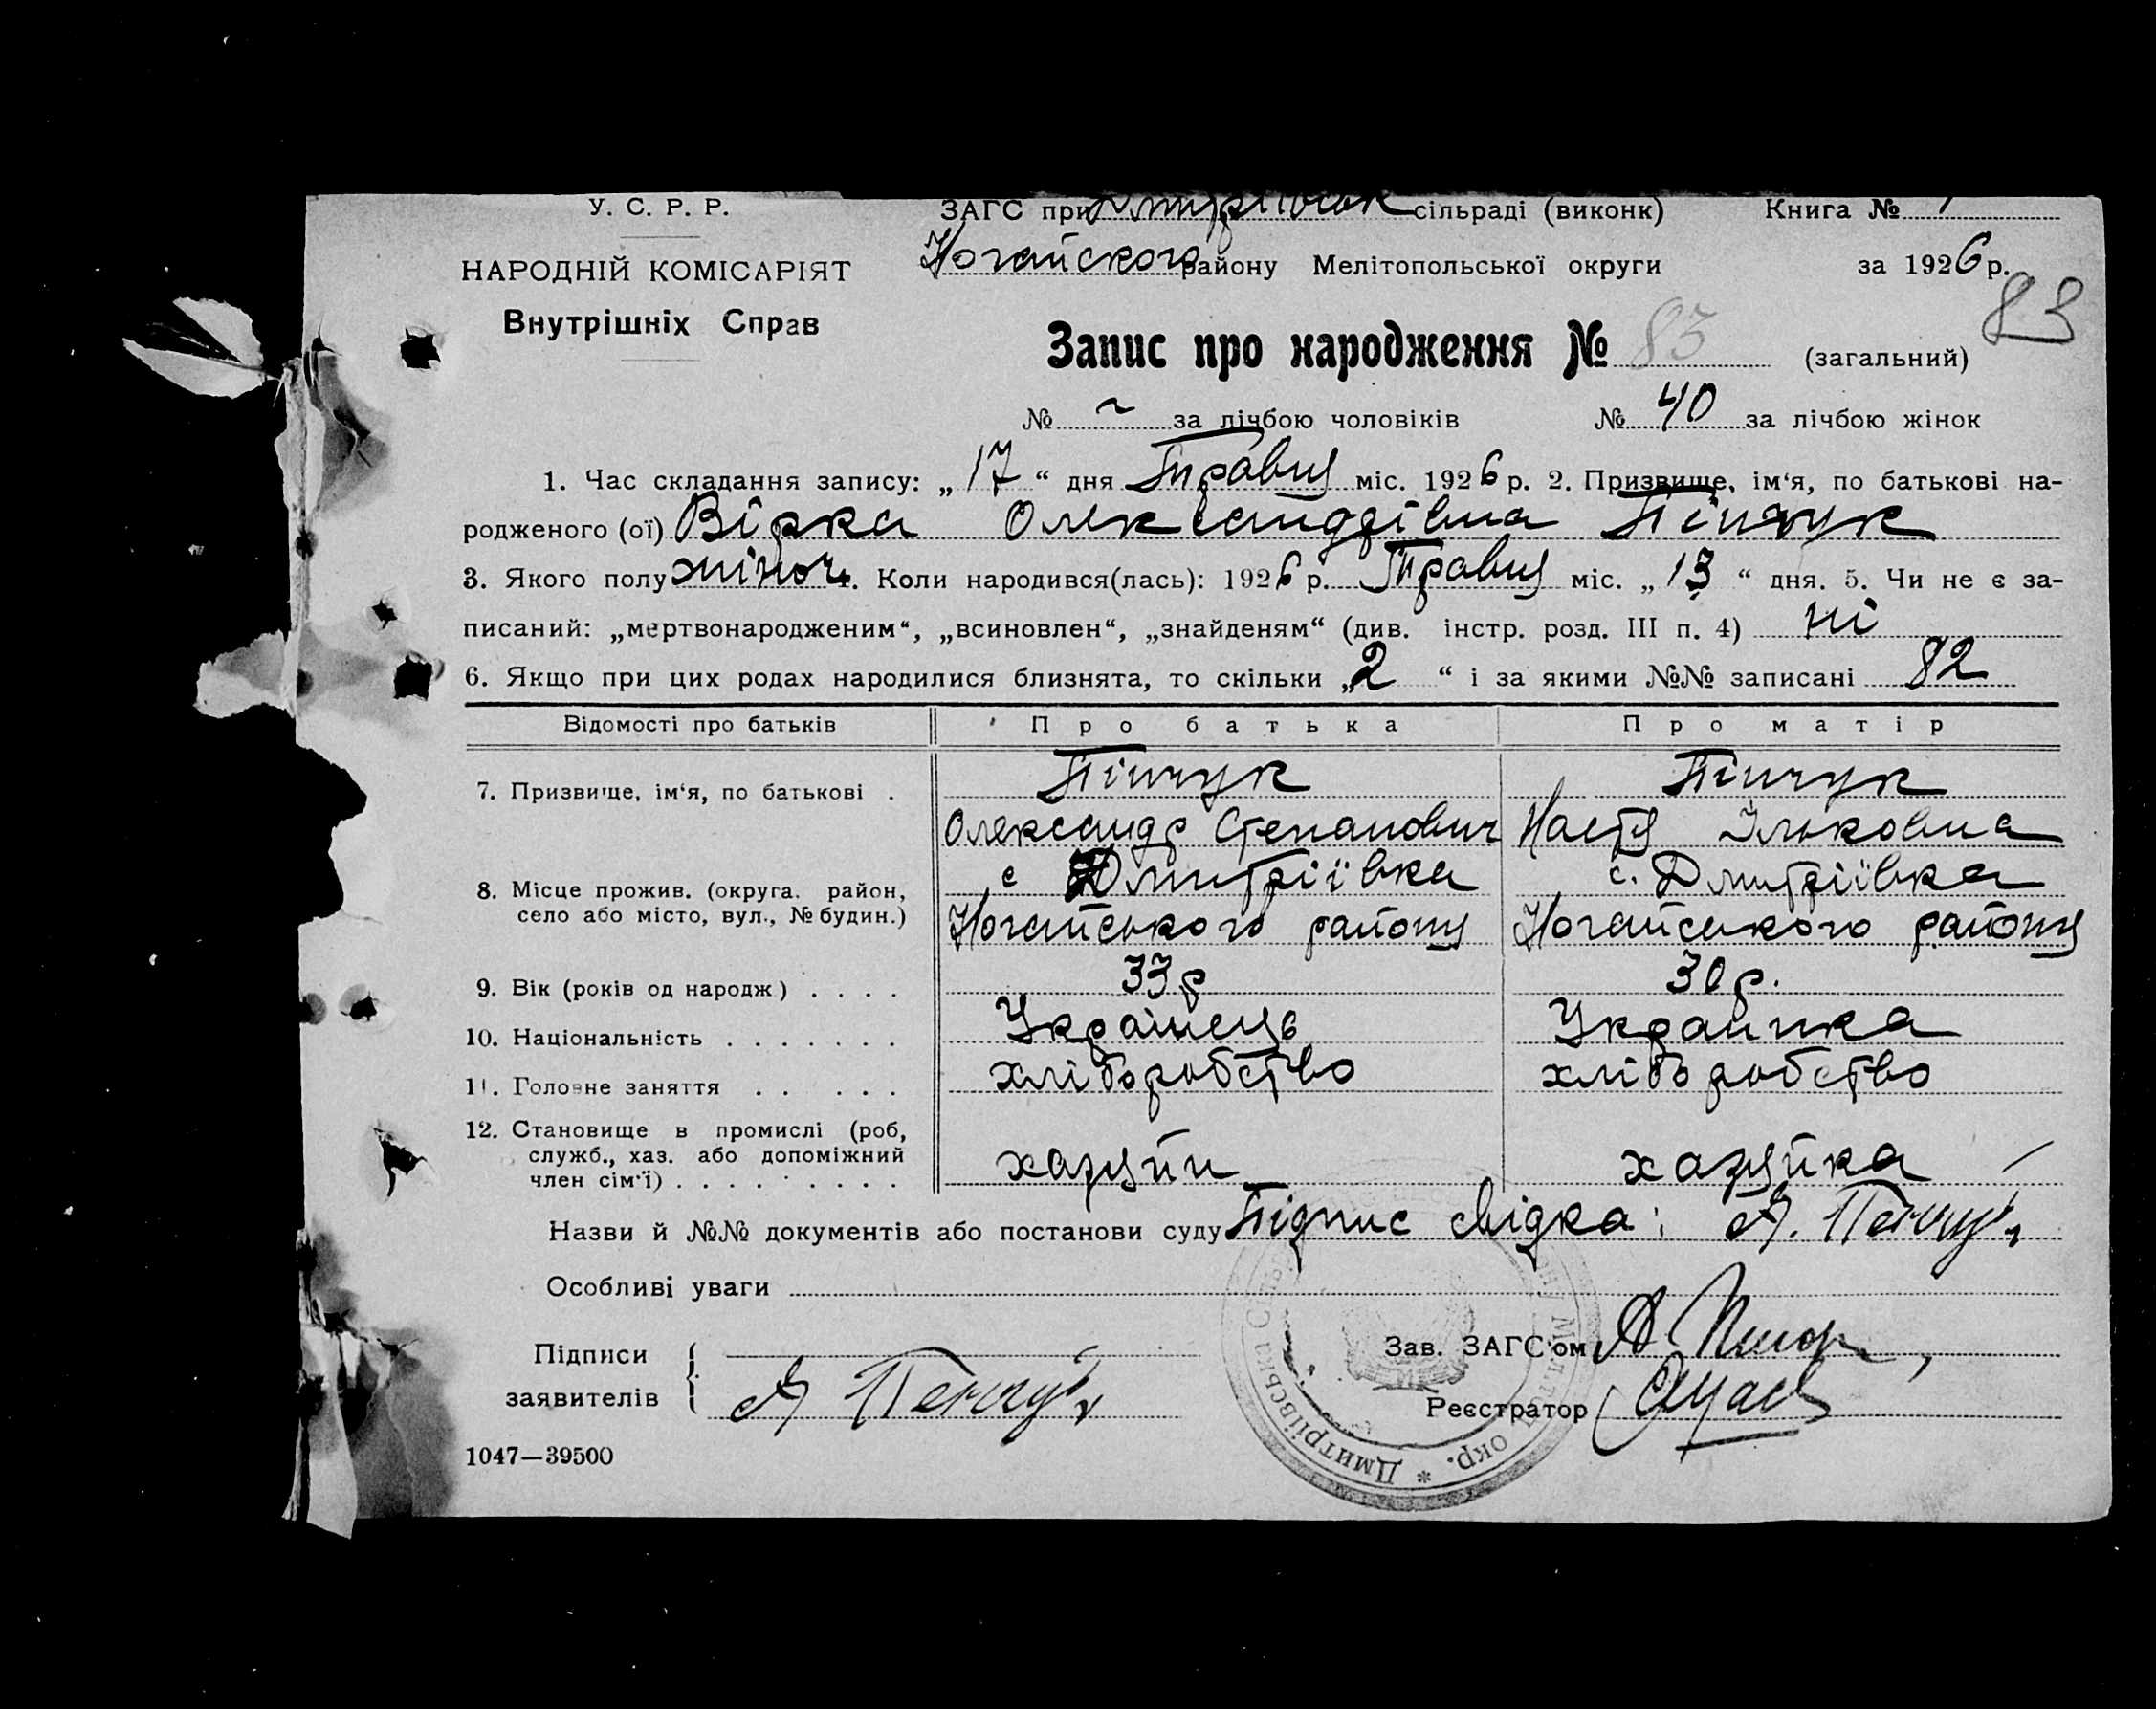 У. С. Р. Р.
НАРОДНІЙ КОМІСАРІЯТ
Внутрішніх Справ
ЗАГС при сільраді (виконк) Книга №
Ногайского району Мелітопольської округи за 1926 р.
83
Запис про народження № 83 (загальний)
№ ~ за лічбою чоловіків № 40 за лічбою жінок
1. Час складання запису: „17“ дня Травня міс. 1926 р. 2. Призвище, ім‘я, по батькові на-
родженого (ої) Вірка Олександрівна Пінчук
3. Якого полу жіноч 4. Коли народився(лась): 1926 р. Травня міс. „13“ дня. 5. Чи не є за-
писаний: „мертвонародженим“, „всиновлен“, „знайденям“ (див. інстр. розд. III п. 4) ні
6. Якщо при цих родах народилися близнята, то скільки „2“ і за якими №№ записані 82
Відомості про батьків Про батька Про матір
7. Призвище, ім‘я, по батькові . Пінчук Пінчук
Олександр Степанович Настя Ільковна
с Дмитріївка с. Дмитріївка
8. Місце прожив. (округа. район,
село або місто, вул., № будин.) Ногайського району Ногайського району
9. Вік (років од народж) . . . . 33 р 30 р.
10. Національність . . . . . . . Українець Украинка
11. Головне заняття . . . . . хліборобство хліборобство
12. Становище в промислі (роб,
служб., хаз. або допоміжний
член сім‘ї) . . . . . . . . . . хазуйи хазуйка
Назви й №№ документів або постанови суду Підпис свідка: А. Пенчук
Особливі уваги
Підписи
заявителів А Пенчук
Зав. ЗАГС‘ом
Реєстратор
Дмитрівська окр.
1047—39500